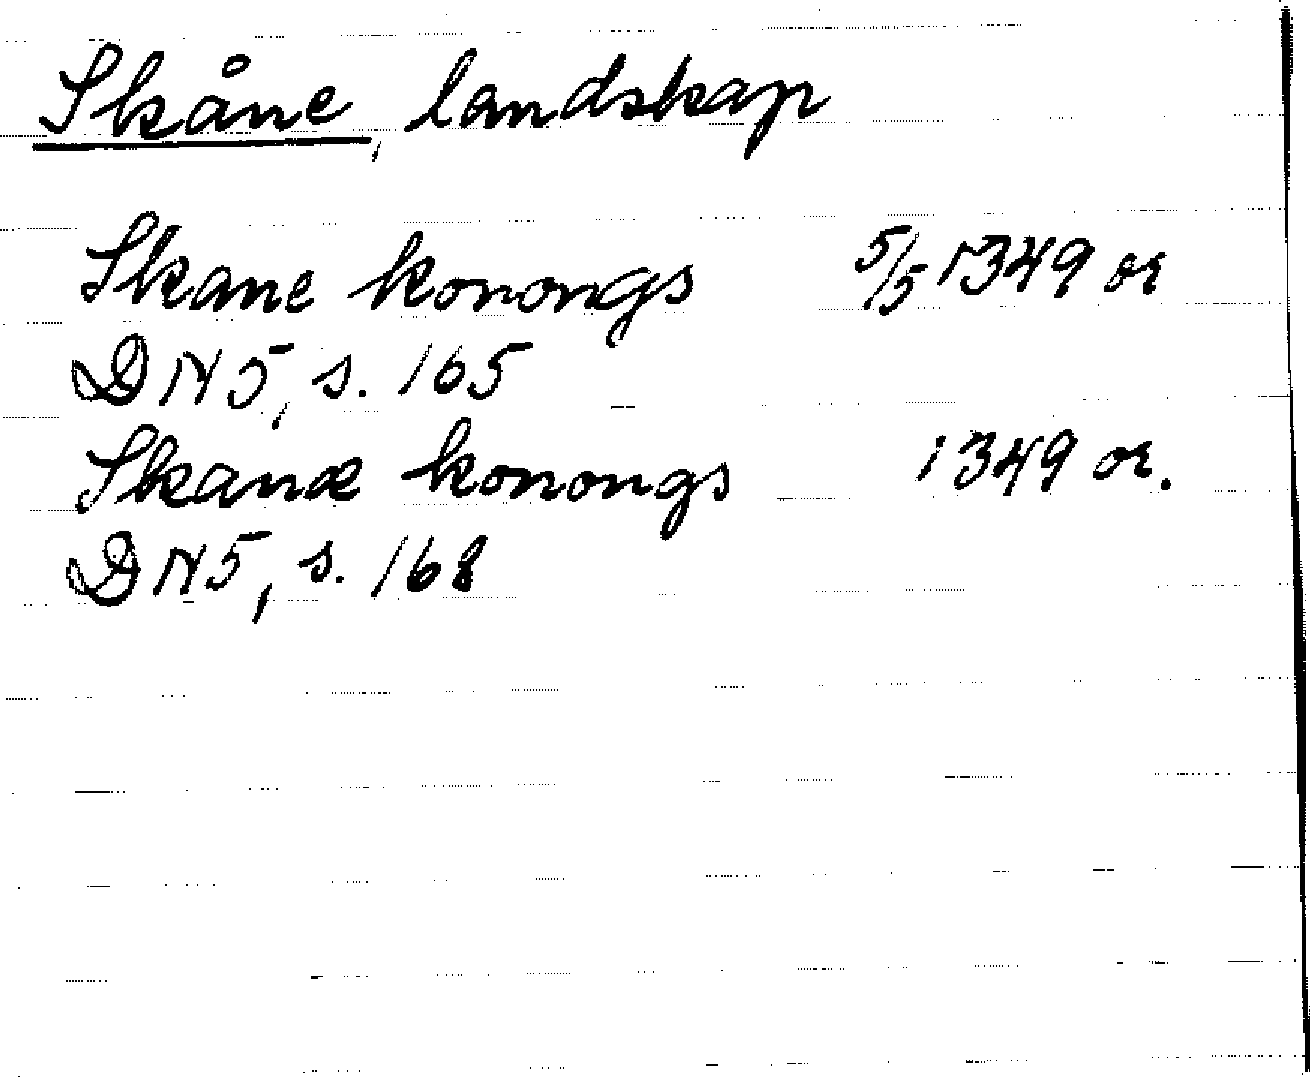 Skåne, landskap
Skane konongs 5/5 1349 or
DN5, s. 165
Skanæ konongs 1349 or.
DN5, s. 168